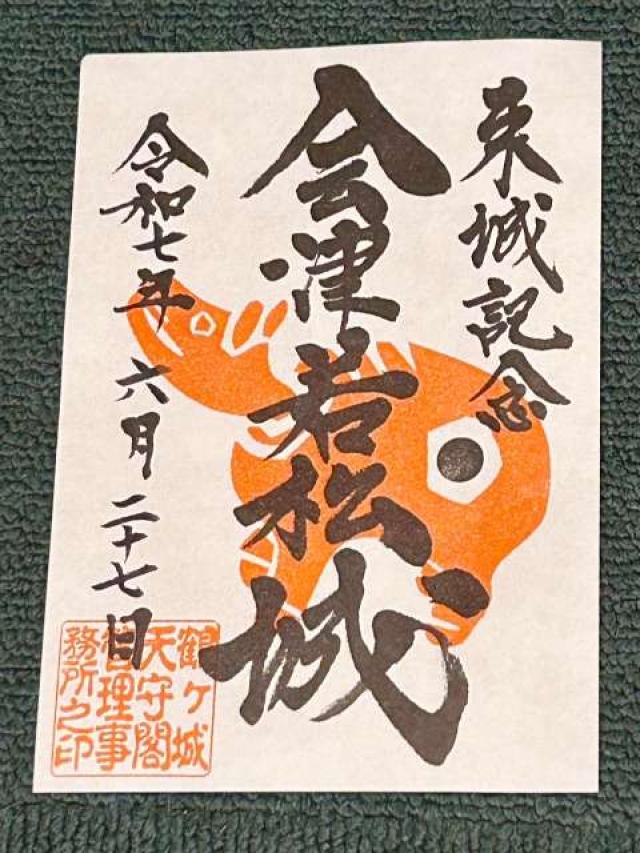 来城記念
会津若松城
令和七年 六月 二十七日
鶴ヶ城
天守閣
管理事
務所之印